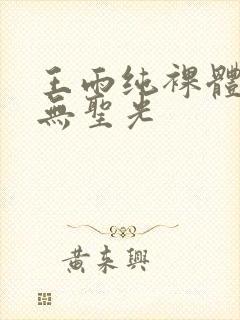 王雨纯裸體
無聖光
黄来興